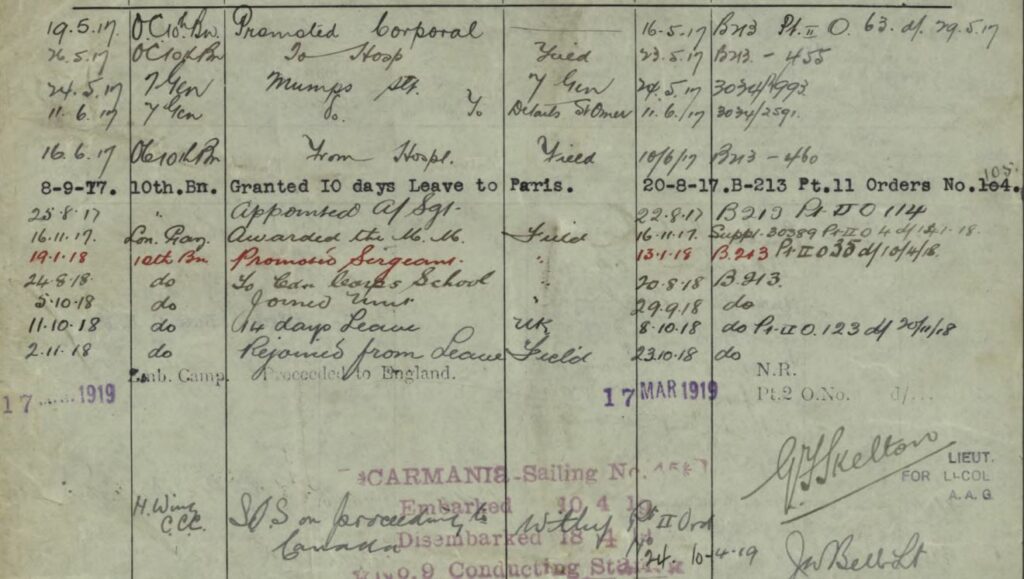 19.5.17 O.C 10th Bn. Promoted Corporal 16.5.17 B213 Pt. II O. 63. d/. 29.5.17
26.5.17 O C 10th Bn To Hosp Field 23.5.17 B213 - 455
24.5.17 7 Gen Mumps Slt. 7 Gen 24.5.17 3034/
11.6.17 7 Gen Do. To Details St Omer 11.6.17 3034/2591.
16.6.17 OC 10th Bn From Hospl. Field 10/6/17 B213 - 460
8-9-17. 10th.Bn. Granted I0 days Leave to Paris. 20-8-17. B-213 Pt.11 Orders No.104. 105.
25.8.17 " Appointed A/Sgt. 22.8.17 B213 Pt II O 114
16.11.17. Lon. Gaz. Awarded the M.M. Field 16.11.17. Suppl. 30389 Pt II O 4 d/ 1.18.
19.1.18 10th Bn Promoted Sergeant. " 13.1.18 B.213 Pt II O 35 d/10/4/18.
24.8.18 do To Cdn Corps School " 20.8.18 B.213.
5.10.18 do Joined Unit " 29.9.18 do
11.10.18 do 14 days Leave UK 8.10.18 do Pt II O. 123 d/ 20/11/18
2.11.18 do Rejoined from Leave Field 23.10.18 do
Emb. Camp. Proceeded to England. N.R.
17 1919 17 MAR 1919 Pt.2 O.No. d/...
G F Skelton LIEUT.
FOR Lt-COL
A.A.G
CARMANIA Sailing No.
Embarked 10.4.19
H. Wing C.C.C. S.O.S on proceeding to Canada Witley Pt II Ord
Disembarked 18 4
24. 10-4-19 Bell Lt
No.9 Conducting Staff